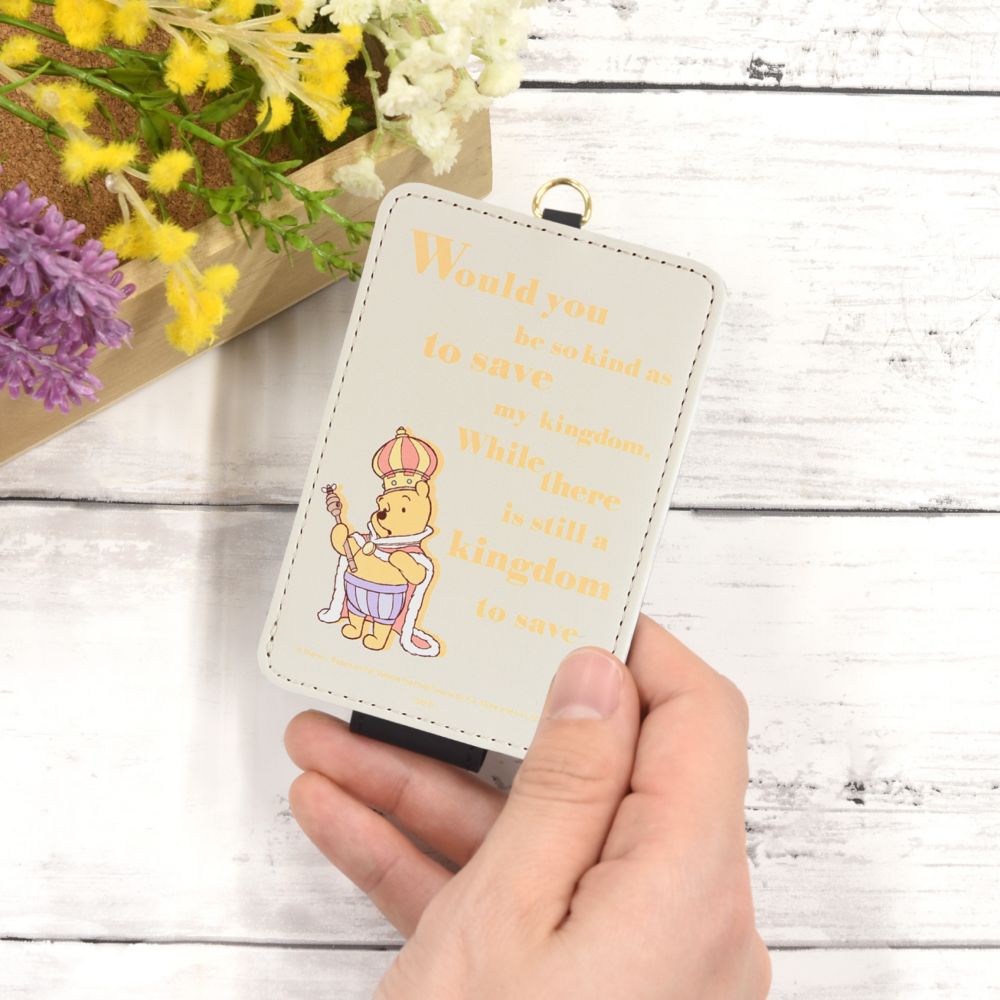 Would you
be so kind as
to save
my kingdom,
While there
is still a
kingdom
to save
© Disney. Based on the "Winnie the Pooh" works by A.A. Milne and E.H.